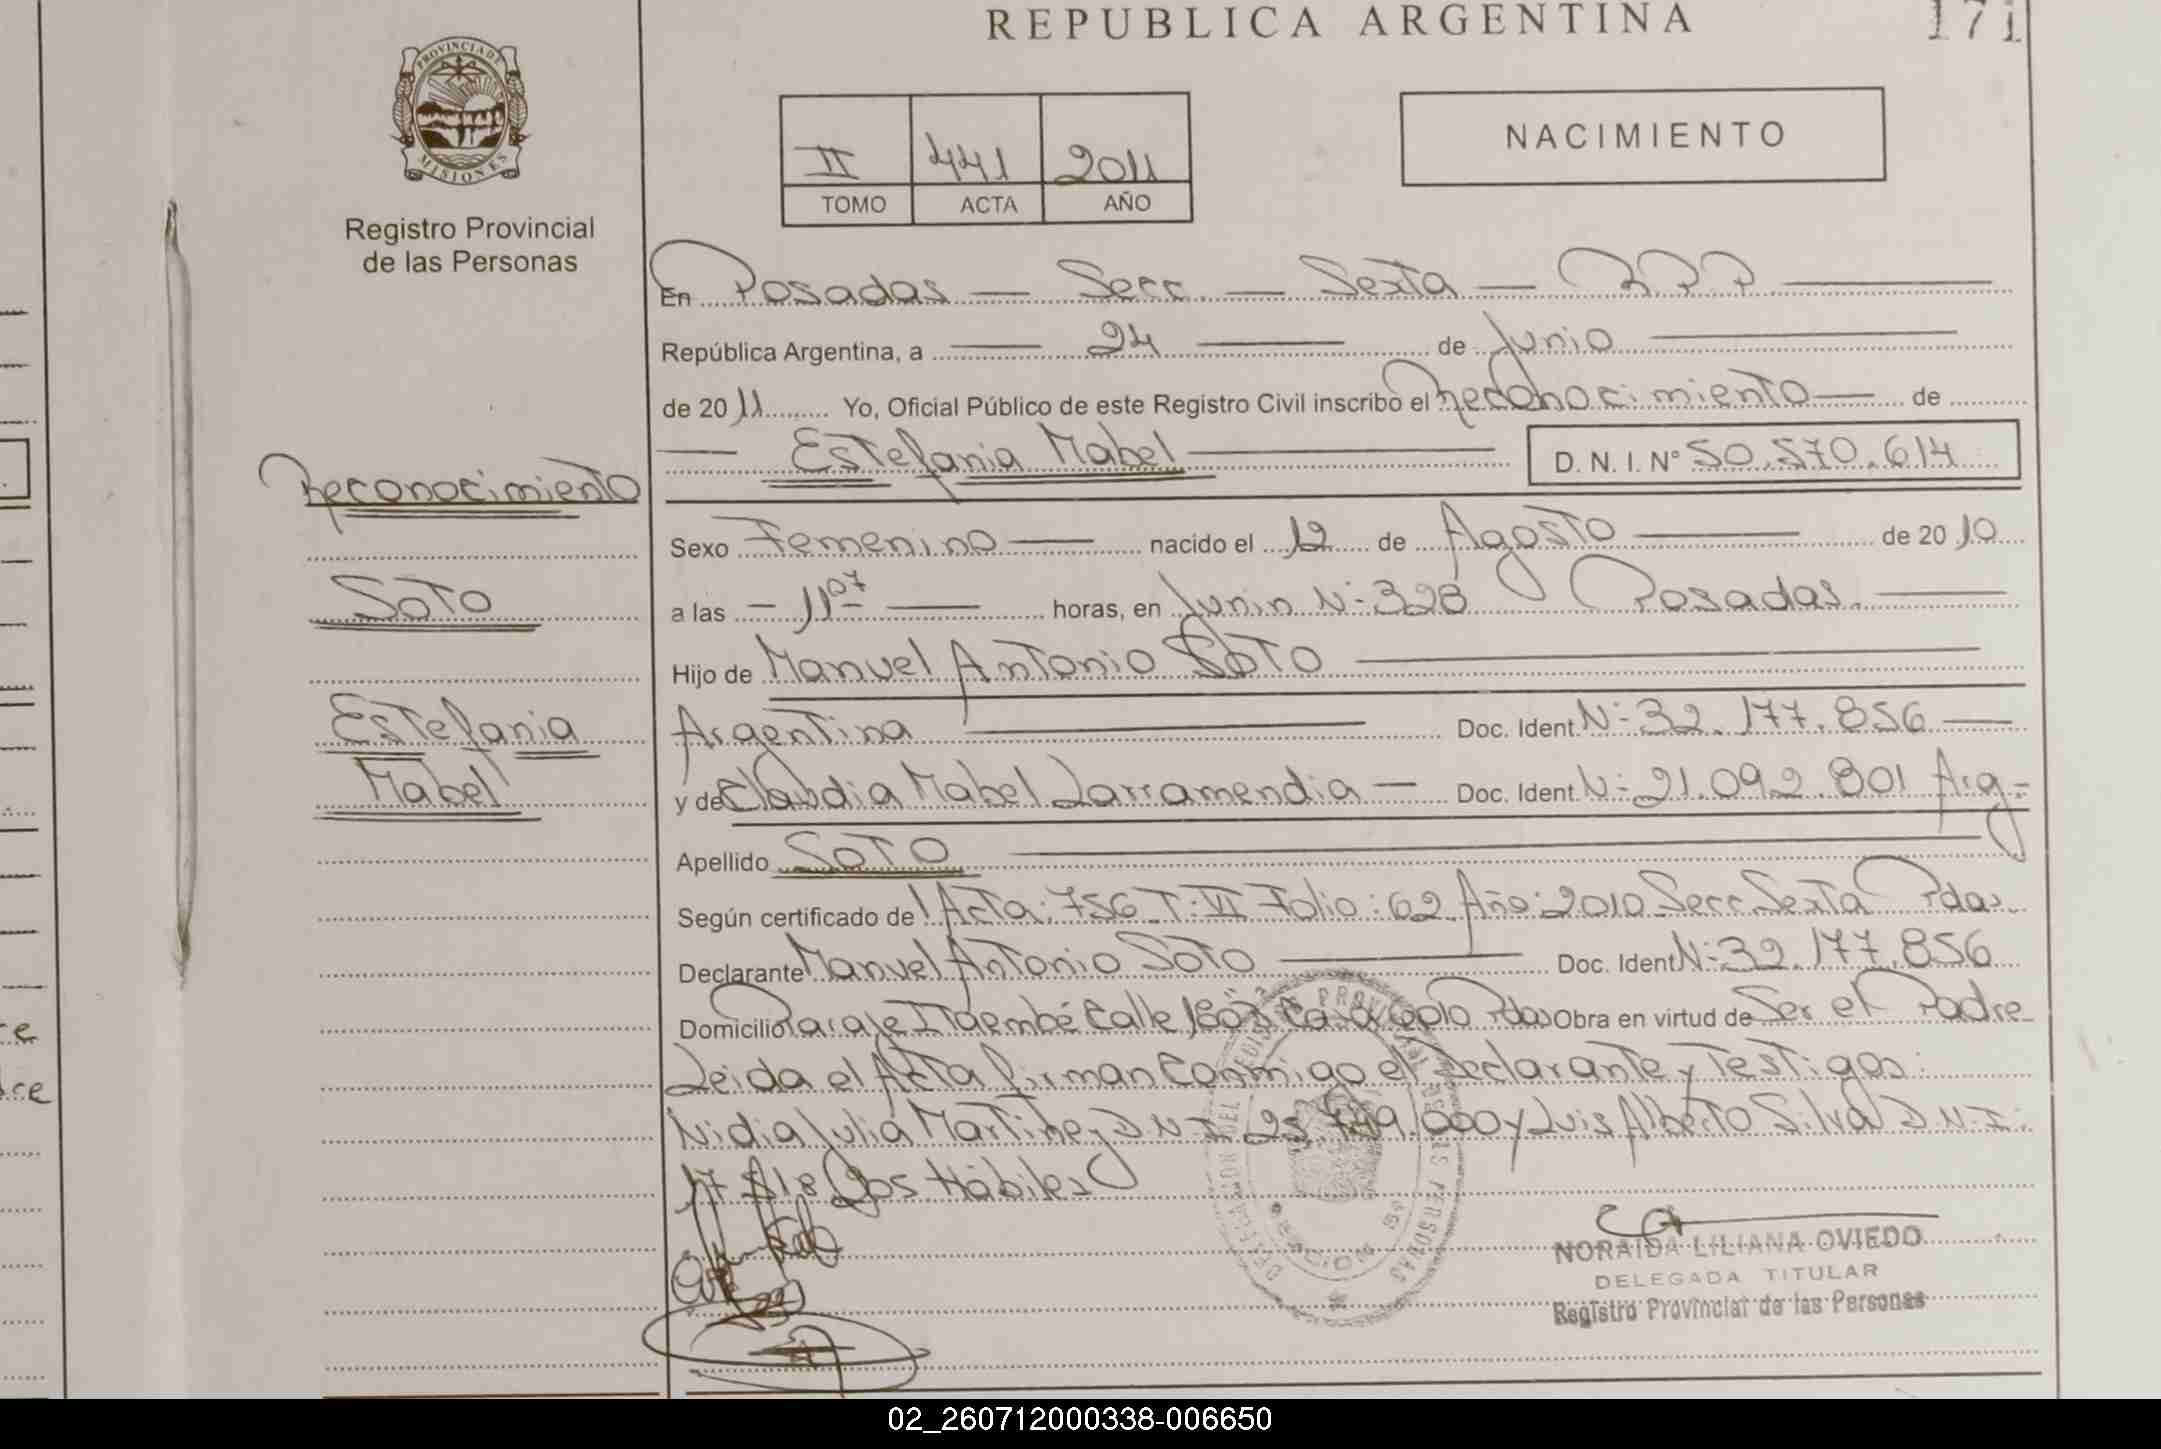 REPUBLICA ARGENTINA
171
PROVINCIA DE MISIONES
Registro Provincial
de las Personas
II 441 2011
TOMO ACTA AÑO
NACIMIENTO
En Posadas — Secc. — Sexta — R P P
República Argentina, a 24 de Junio
de 2011 Yo, Oficial Público de este Registro Civil inscribo el Reconocimiento de
Estefania Mabel D. N. I. Nº 50.570.614
Reconocimiento
Soto
Estefania
Mabel
Sexo Femenino nacido el 12 de Agosto de 2010
a las 11 07 horas, en Junin Nº 328 Posadas.
Hijo de Manuel Antonio Soto
Argentina Doc. Ident. Nº 32.177.856
y de Claudia Mabel Larramendia Doc. Ident. Nº 21.092.801 Arg.
Apellido Soto
Según certificado de Acta: 756 T: VI Folio: 62 Año: 2010 Secc. Sexta Pdas.
Declarante Manuel Antonio Soto Doc. Ident Nº 32.177.856
Domicilio Paraje Itaembé Calle Pdas Obra en virtud de Ser el Padre
Leida el Acta firman conmigo el Declarante y Testigos:
Nidia Julia Martinez D N I y Luis Alberto Silva D.N.I:
Hábiles
NORAIDA LILIANA OVIEDO
DELEGADA TITULAR
Registro Provincial de las Personas
02_260712000338-006650